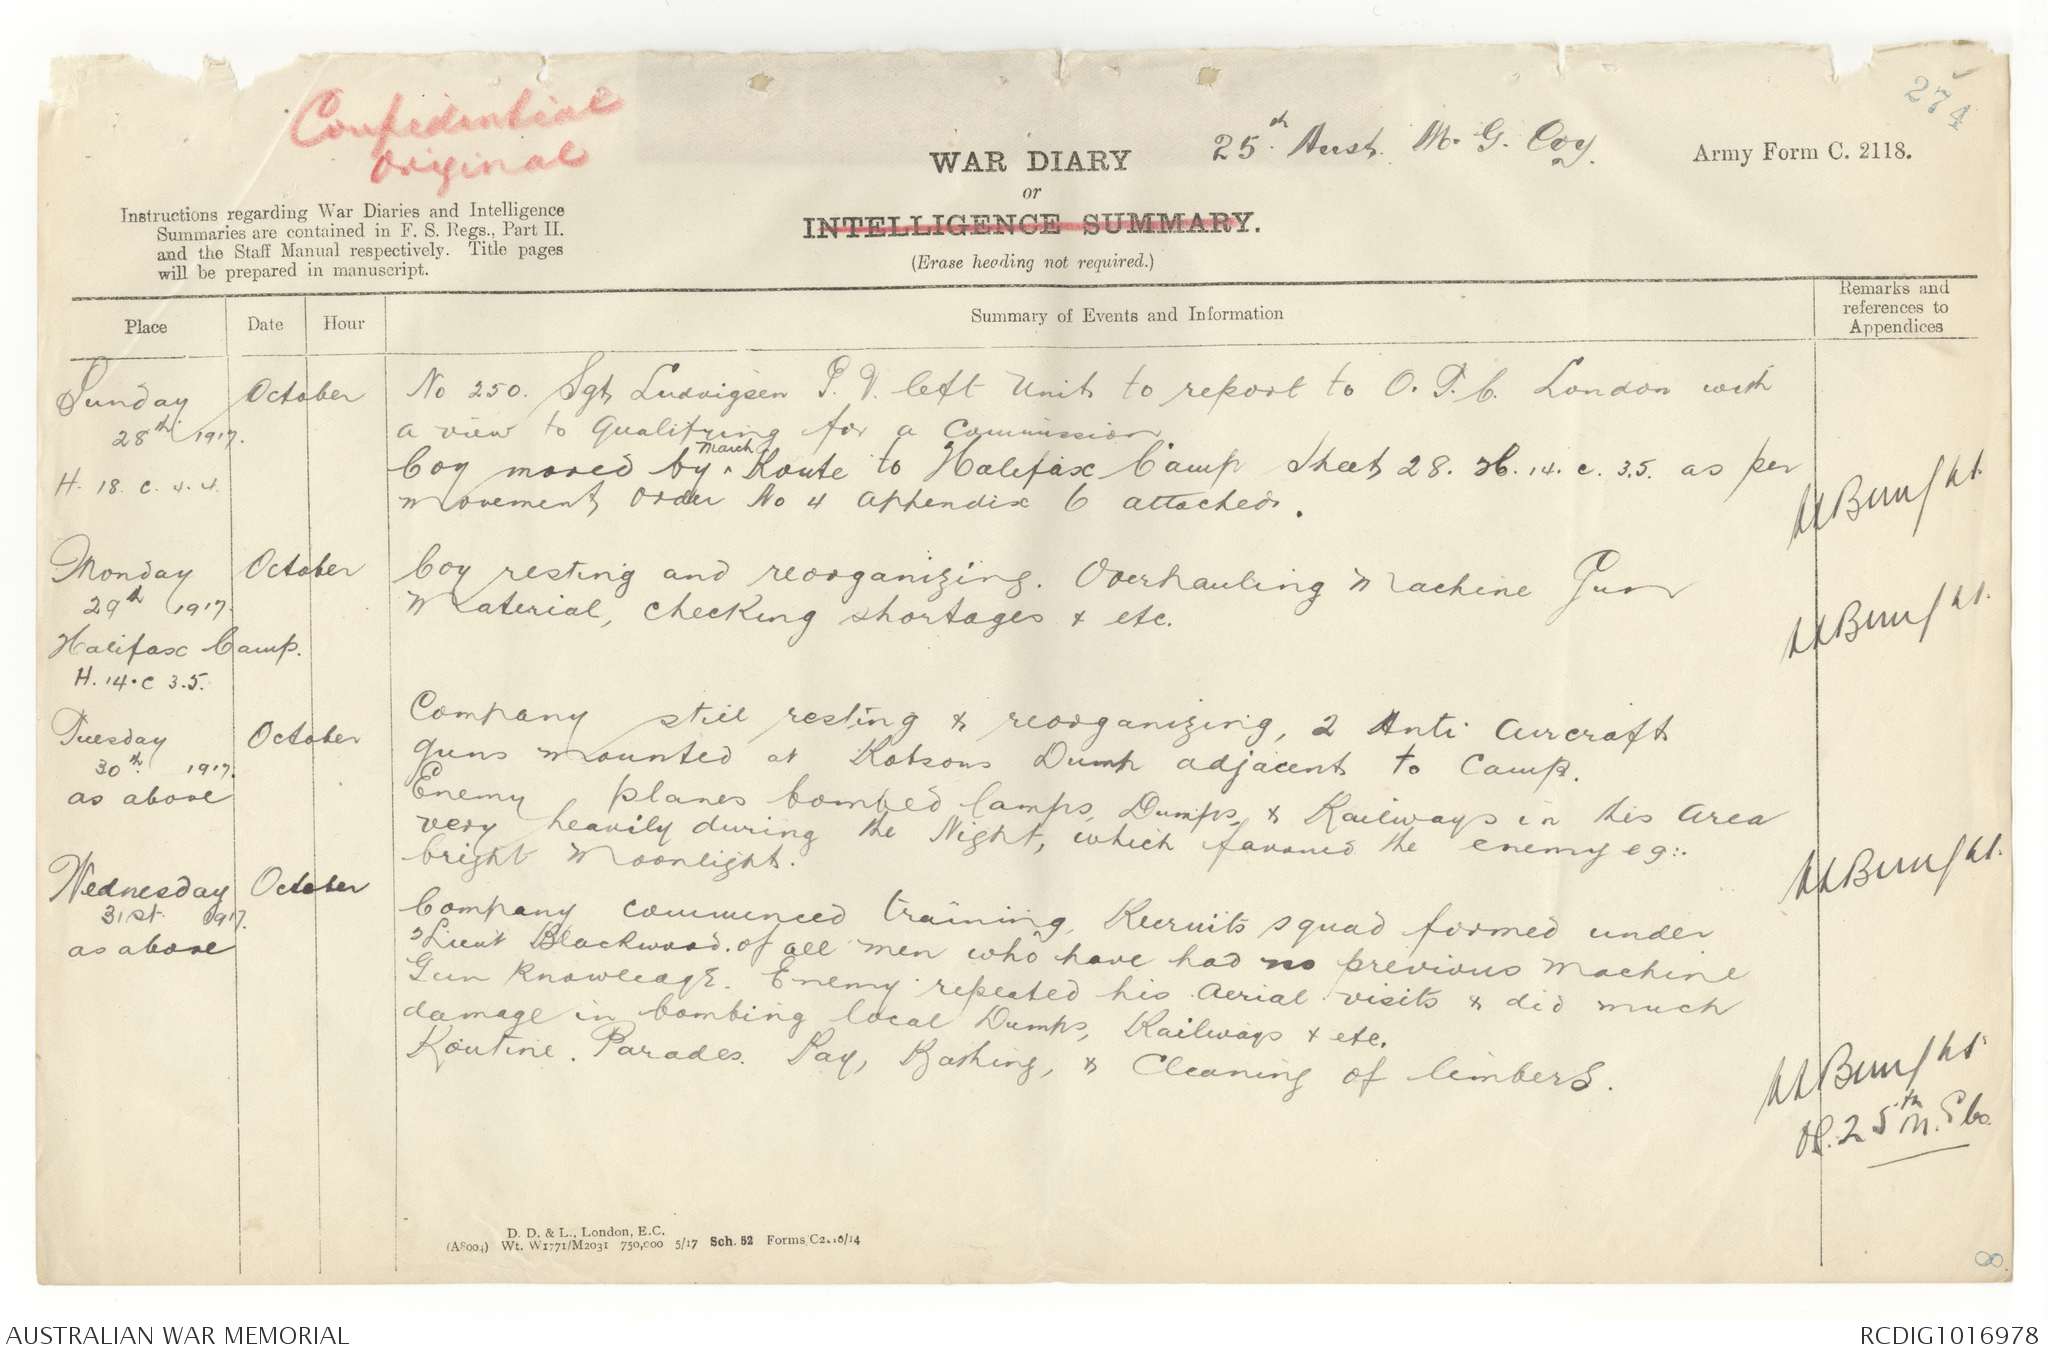 Confidential
Original
274
25th Aust. M. G. Coy.
Army Form C. 2118.
WAR DIARY
or
INTELLIGENCE SUMMARY.
(Erase heading not required.)
Instructions regarding War Diaries and Intelligence
Summaries are contained in F. S. Regs., Part II.
and the Staff Manual respectively. Title pages
will be prepared in manuscript.
Place
Date
Hour
Summary of Events and Information
Remarks and
references to
Appendices
Sunday
28th 1917.
H. 18. c. 4.4.
October
No 250. Sgt Ludvigsen P. V. left Unit to report to O. T. C. London with
a view to Qualifying for a Commission.
Coy moved by March Route to Halifax Camp Sheet 28. H. 14. c. 3.5. as per
Movement Order No 4 Appendix 6 attached.
Monday
29th 1917
Halifax Camp.
H. 14. c 3.5.
October
Coy resting and reorganizing. Overhauling Machine Gun
Material, checking shortages & etc.
Tuesday
30th 1917.
as above
October
Company still resting & reorganizing, 2 Anti Aircraft
guns mounted at Dump adjacent to Camp.
Enemy planes bombed Camps, Dumps, & Railways in this area
very heavily during the Night, which favoured the enemy eg:.
bright Moonlight.
Wednesday
31st 1917.
as above
October
Company commenced training, Recruits squad formed under
Lieut Blackwood. of all men who have had no previous Machine
Gun knowledge. Enemy repeated his aerial visits & did much
damage in bombing local Dumps, Railways & etc.
Routine. Parades. Pay, Bathing, & Cleaning of limbers.
OC. 25th M. G. Co.
D. D. & L., London, E.C.
(A8004) Wt. W1771/M2031 750,000 5/17 Sch. 52 Forms/C2118/14
8
AUSTRALIAN WAR MEMORIAL
RCDIG1016978